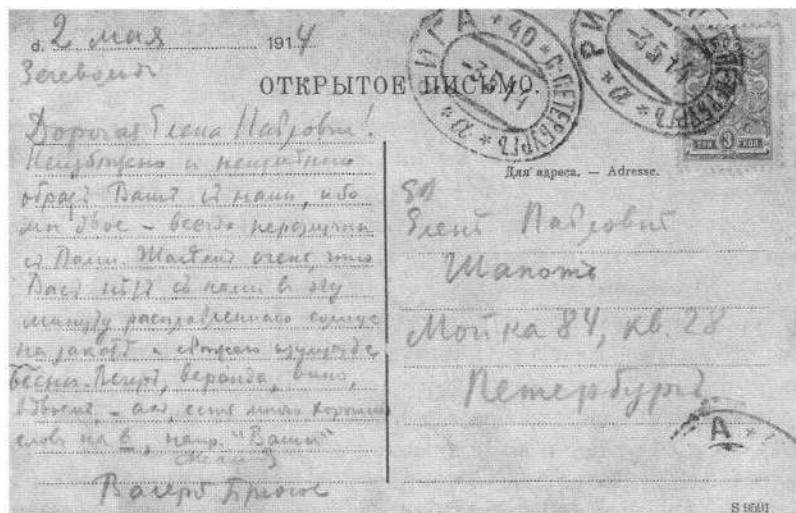 d. 2 мая 1914
Зегевольд
ОТКРЫТОЕ ПИСЬМО.
РИГА * 40 * С-ПЕТЕРБУРГЪ * а *
-3.5.14
Для адреса. — Adresse.
ТРИ 3 КОП.
Дорогая Елена Павловна!
Неизбежно и неизменно
образъ Вашъ съ нами, ибо
мы двое - всегда неразлучны
съ Вами. Жалѣемъ очень, что
Васъ нѣтъ съ нами в эту
минуту расплавленнаго солнца
на закатѣ и свѣжаго изумруда
весны. Вечеръ, веранда, вино,
вдвоемъ, - ахъ, есть много хорошихъ
словъ на в, напр. "Вашъ"
Валерій Брюсов
ЕВ
Еленѣ Павловнѣ
Мойка 84, кв. 28
Петербургъ
А
S 9501